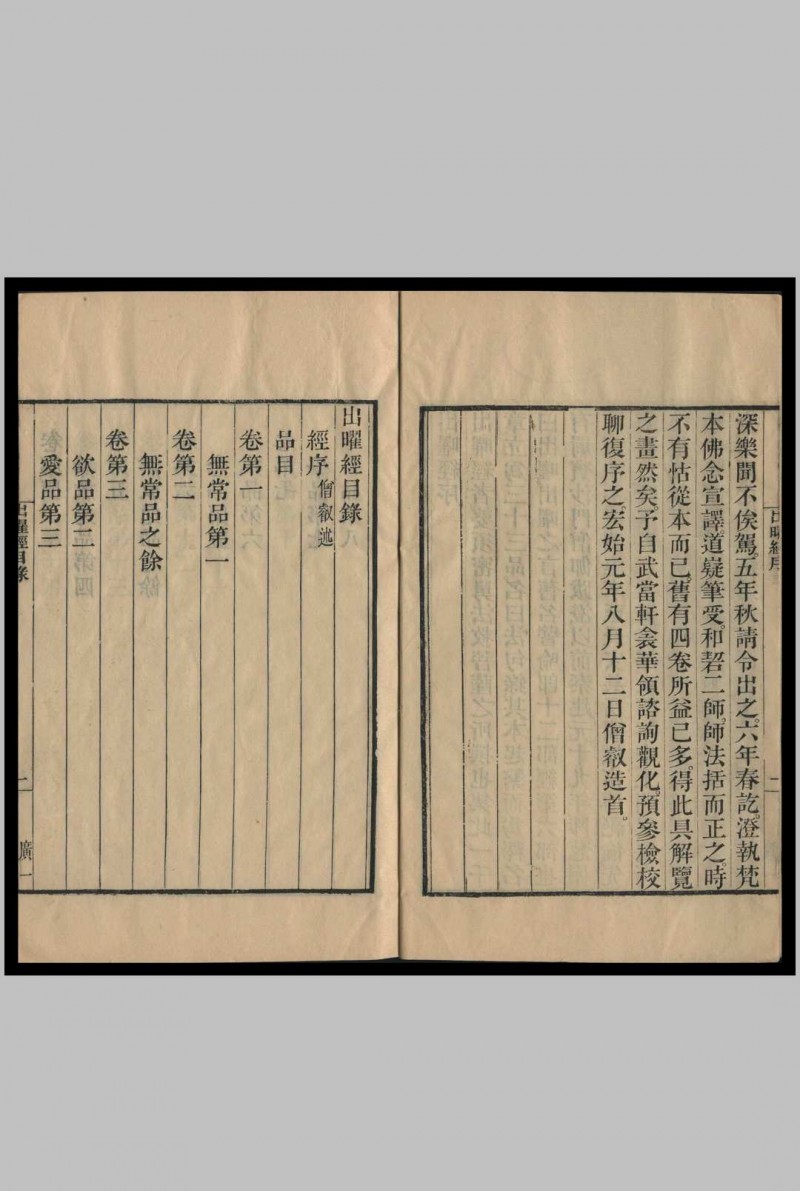 出曜經序
二
深樂聞不俟駕。五年秋請令出之。六年春訖。澄執梵
本佛念宣譯。道嶷筆受。和碧二師。師法括而正之。時
不有怙從本而已。舊有四卷所益已多。得此具解覽
之畫然矣。予自武當軒衾華領諮詢觀化。預參檢校
聊復序之。宏始元年八月十二日僧叡造首。
出曜經目錄
經序 僧叡述
品目
卷第一
無常品第一
卷第二
無常品之餘
卷第三
欲品第二
愛品第三
出曜經目錄
一
廣一